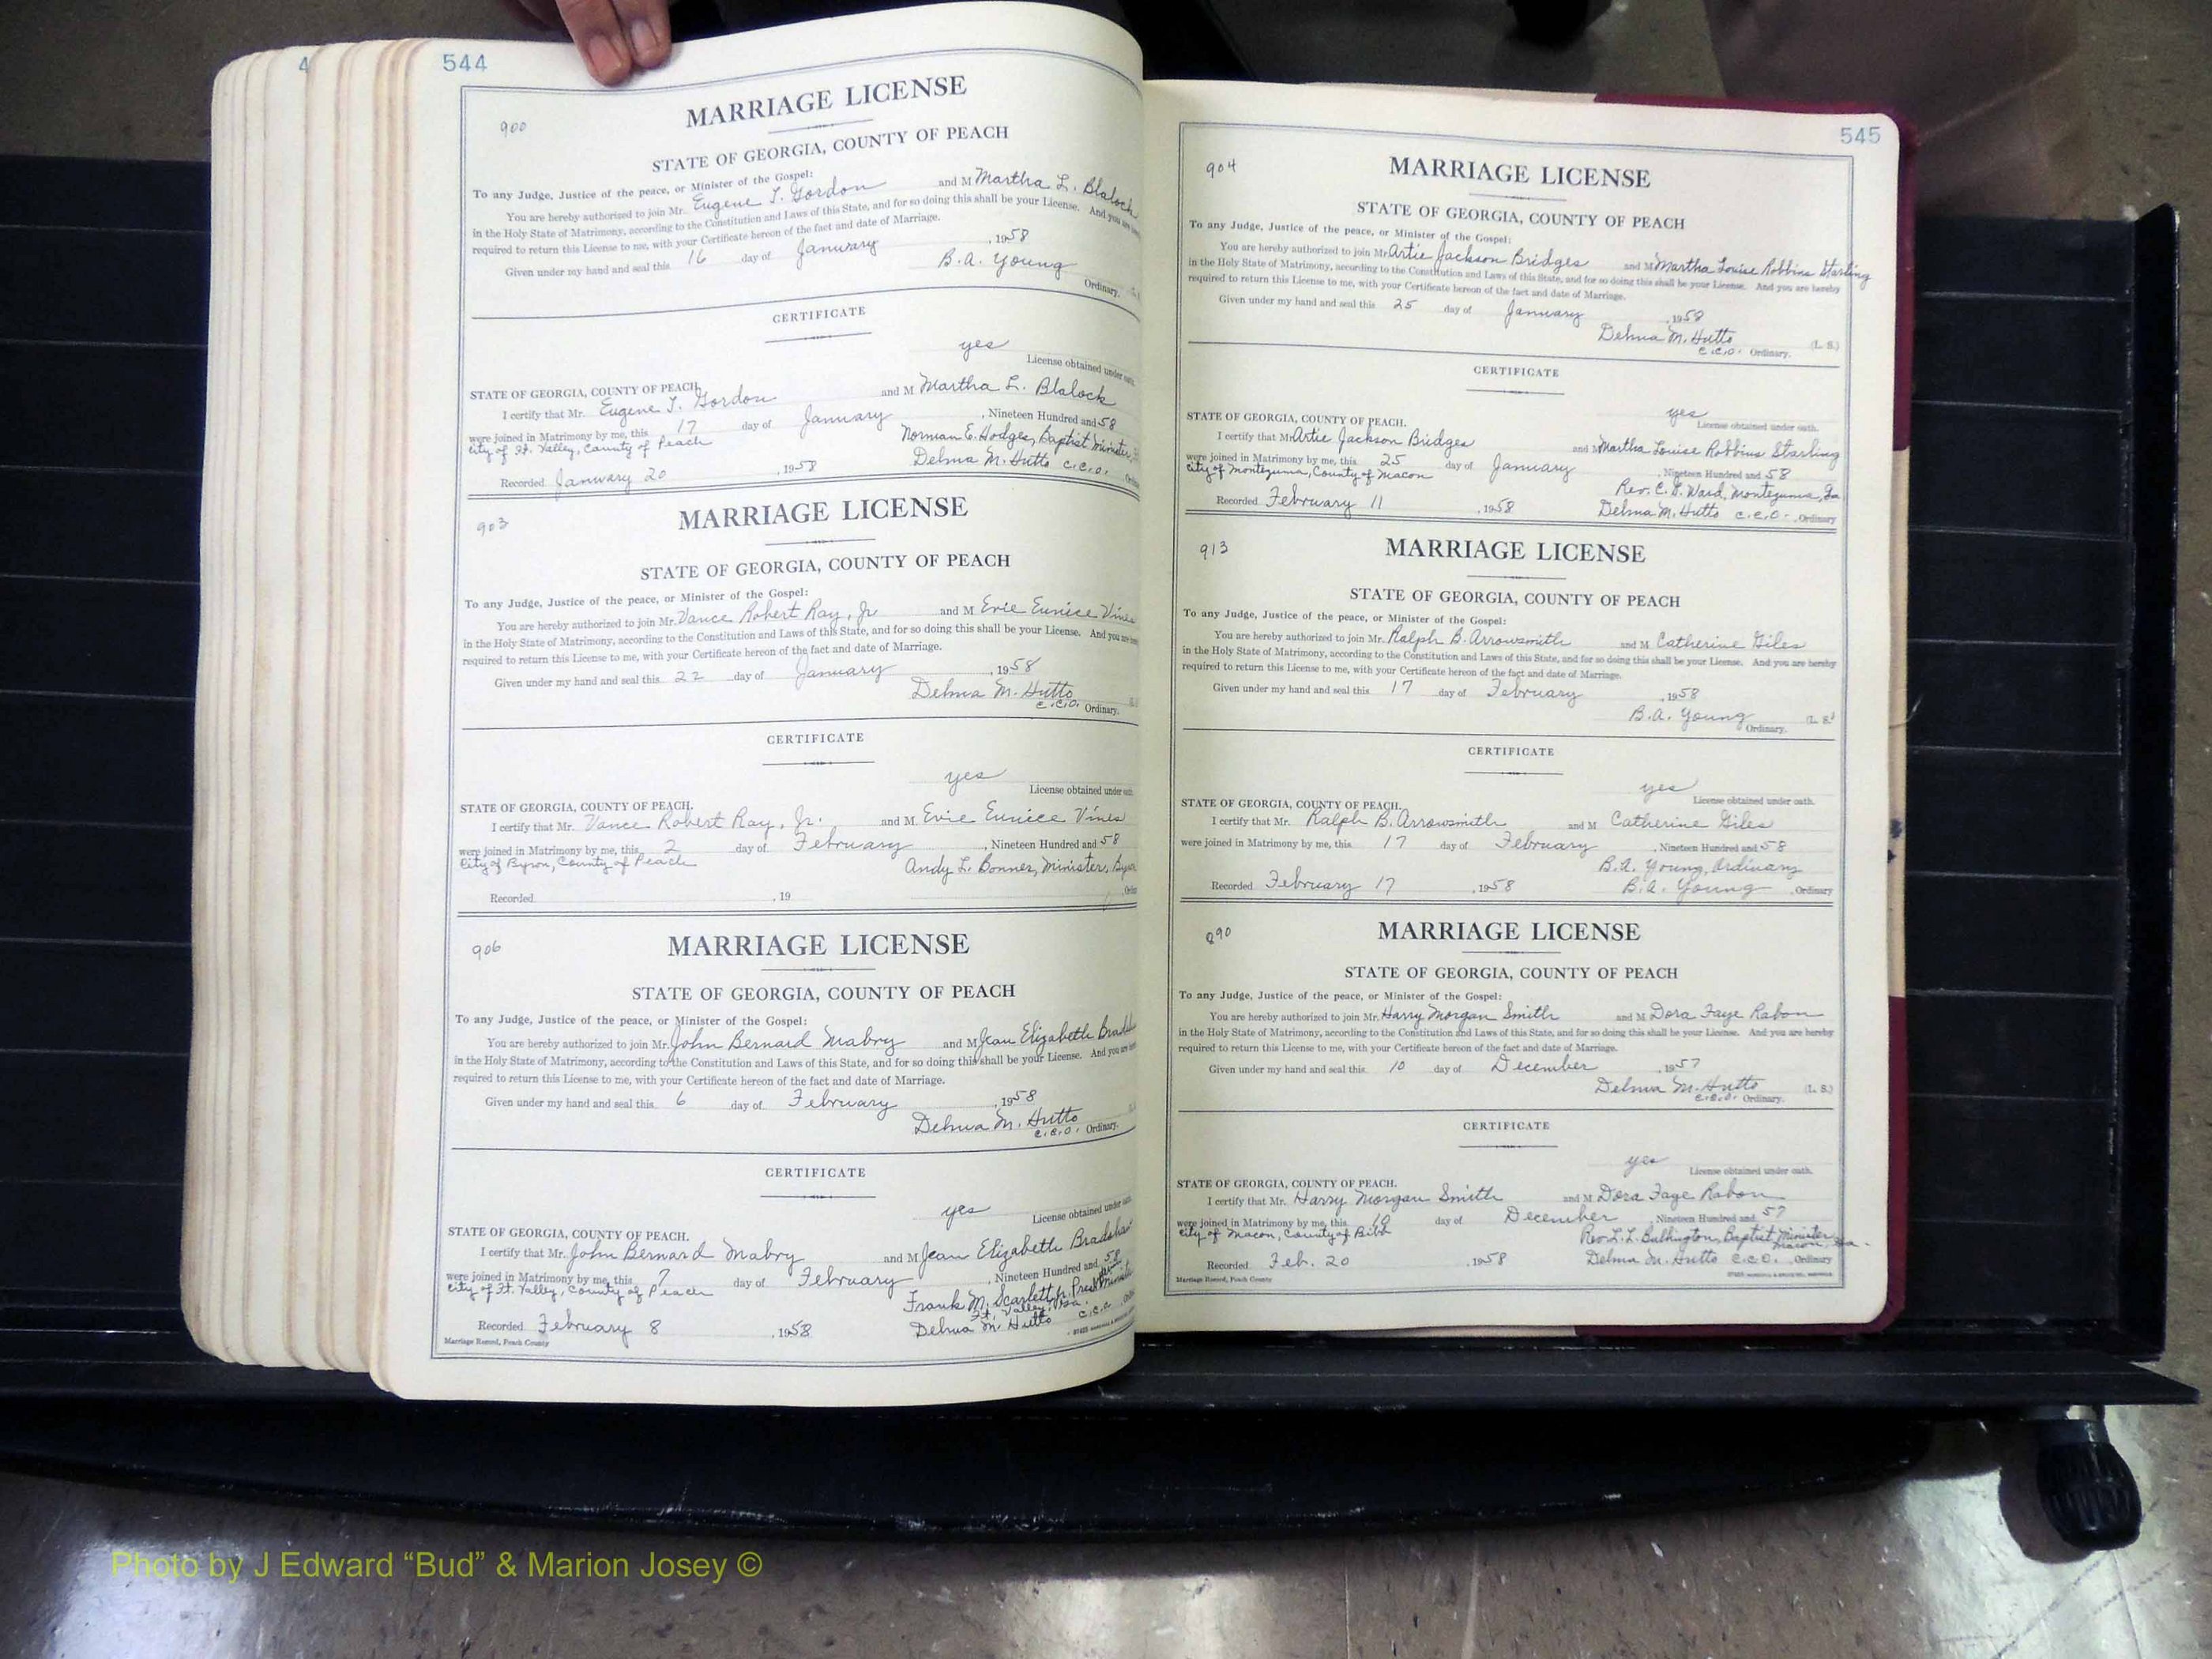 4
544
900
MARRIAGE LICENSE
STATE OF GEORGIA, COUNTY OF PEACH
To any Judge, Justice of the peace, or Minister of the Gospel:
You are hereby authorized to join Mr. Eugene T. Gordon and M Martha L. Blalock
in the Holy State of Matrimony, according to the Constitution and Laws of this State, and for so doing this shall be your License. And you are
required to return this License to me, with your Certificate hereon of the fact and date of Marriage.
Given under my hand and seal this 16 day of January, 1958
B.A. Young
Ordinary.
CERTIFICATE
yes
License obtained under oath.
STATE OF GEORGIA, COUNTY OF PEACH.
I certify that Mr. Eugene T. Gordon and M Martha L. Blalock
were joined in Matrimony by me, this 17 day of January, Nineteen Hundred and 58
City of Ft. Valley, County of Peach Norman E. Hodges, Baptist Minister,
Recorded January 20, 1958 Delma M. Hutto C.C.O.
903
MARRIAGE LICENSE
STATE OF GEORGIA, COUNTY OF PEACH
To any Judge, Justice of the peace, or Minister of the Gospel:
You are hereby authorized to join Mr. Vance Robert Ray, Jr. and M Evie Eunice Vines
in the Holy State of Matrimony, according to the Constitution and Laws of this State, and for so doing this shall be your License. And you are
required to return this License to me, with your Certificate hereon of the fact and date of Marriage.
Given under my hand and seal this 22 day of January, 1958
Delma M. Hutto
C.C.O. Ordinary.
CERTIFICATE
yes
License obtained under oath.
STATE OF GEORGIA, COUNTY OF PEACH.
I certify that Mr. Vance Robert Ray, Jr. and M Evie Eunice Vines
were joined in Matrimony by me, this 2 day of February, Nineteen Hundred and 58
City of Byron, County of Peach Andy L. Bonner, Minister,
Recorded , 19
906
MARRIAGE LICENSE
STATE OF GEORGIA, COUNTY OF PEACH
To any Judge, Justice of the peace, or Minister of the Gospel:
You are hereby authorized to join Mr. John Bernard Mabry and M Jean Elizabeth
in the Holy State of Matrimony, according to the Constitution and Laws of this State, and for so doing this shall be your License. And you are
required to return this License to me, with your Certificate hereon of the fact and date of Marriage.
Given under my hand and seal this 6 day of February, 1958
Delma M. Hutto
C.C.O. Ordinary.
CERTIFICATE
yes
License obtained under oath.
STATE OF GEORGIA, COUNTY OF PEACH.
I certify that Mr. John Bernard Mabry and M Jean Elizabeth Bradshaw
were joined in Matrimony by me, this 7 day of February, Nineteen Hundred and 58
City of Ft. Valley, County of Peach Frank M. Scarlett, Jr.
Ft. Valley, Ga.
Recorded February 8, 1958 Delma M. Hutto
Marriage Record, Peach County
545
904
MARRIAGE LICENSE
STATE OF GEORGIA, COUNTY OF PEACH
To any Judge, Justice of the peace, or Minister of the Gospel:
You are hereby authorized to join Mr. Artie Jackson Bridges and M Martha Louise Robbins Starling
in the Holy State of Matrimony, according to the Constitution and Laws of this State, and for so doing this shall be your License. And you are hereby
required to return this License to me, with your Certificate hereon of the fact and date of Marriage.
Given under my hand and seal this 25 day of January, 1958
Delma M. Hutto (L. S.)
C.C.O. Ordinary.
CERTIFICATE
yes
License obtained under oath.
STATE OF GEORGIA, COUNTY OF PEACH.
I certify that Mr Artie Jackson Bridges and M Martha Louise Robbins Starling
were joined in Matrimony by me, this 25 day of January, Nineteen Hundred and 58
City of Montezuma, County of Macon Rev. C. S. Ward, Montezuma, Ga
Recorded February 11, 1958 Delma M. Hutto C.C.O., Ordinary
913
MARRIAGE LICENSE
STATE OF GEORGIA, COUNTY OF PEACH
To any Judge, Justice of the peace, or Minister of the Gospel:
You are hereby authorized to join Mr. Ralph B. Arrowsmith and M Catherine Giles
in the Holy State of Matrimony, according to the Constitution and Laws of this State, and for so doing this shall be your License. And you are hereby
required to return this License to me, with your Certificate hereon of the fact and date of Marriage.
Given under my hand and seal this 17 day of February, 1958
B.A. Young (L. S.)
Ordinary.
CERTIFICATE
yes
License obtained under oath.
STATE OF GEORGIA, COUNTY OF PEACH.
I certify that Mr. Ralph B. Arrowsmith and M Catherine Giles
were joined in Matrimony by me, this 17 day of February, Nineteen Hundred and 58
B.A. Young, Ordinary
Recorded February 17, 1958 B.A. Young, Ordinary
890
MARRIAGE LICENSE
STATE OF GEORGIA, COUNTY OF PEACH
To any Judge, Justice of the peace, or Minister of the Gospel:
You are hereby authorized to join Mr. Harry Morgan Smith and M Dora Faye Rabon
in the Holy State of Matrimony, according to the Constitution and Laws of this State, and for so doing this shall be your License. And you are hereby
required to return this License to me, with your Certificate hereon of the fact and date of Marriage.
Given under my hand and seal this 10 day of December, 1957
Delma M. Hutto (L. S.)
C.C.O. Ordinary.
CERTIFICATE
yes
License obtained under oath.
STATE OF GEORGIA, COUNTY OF PEACH.
I certify that Mr. Harry Morgan Smith and M Dora Faye Rabon
were joined in Matrimony by me, this day of December, Nineteen Hundred and 57
City of Macon, County of Bibb Rev. L. L. Bullington, Baptist Minister
Macon, Ga.
Recorded Feb. 20, 1958 Delma M. Hutto C.C.O., Ordinary
Marriage Record, Peach County
Photo by J Edward “Bud” & Marion Josey ©